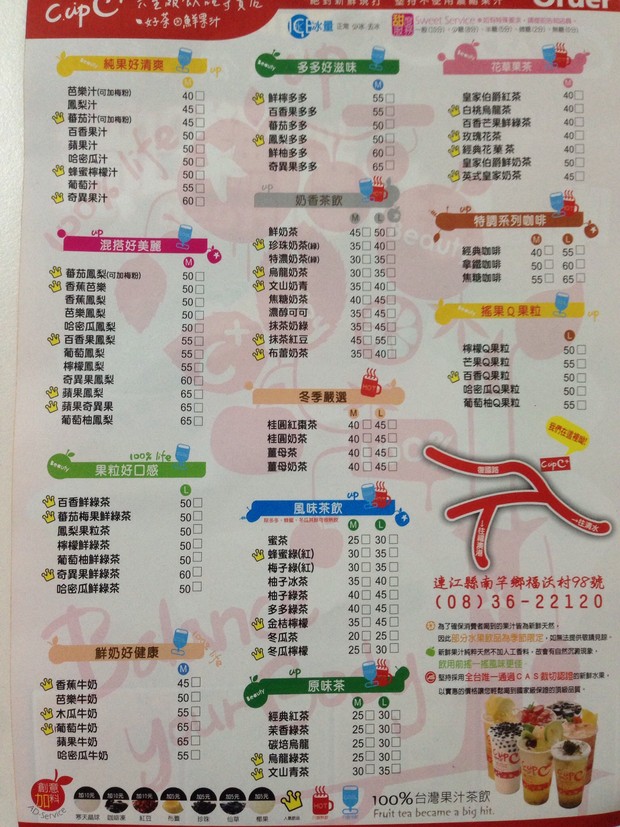 CupC+
好茶 鮮果汁
Order
ICE 冰量 正常 少冰 去冰
甜度 Sweet Service
純果好清爽
M
芭樂汁(可加梅粉) 40
鳳梨汁 45
蕃茄汁(可加梅粉) 45
百香果汁 50
蘋果汁 50
哈密瓜汁 50
蜂蜜檸檬汁 50
葡萄汁 55
奇異果汁 60
up
混搭好美麗
M
蕃茄鳳梨(可加梅粉) 50
香蕉芭樂 50
香蕉鳳梨 50
芭樂鳳梨 50
哈密瓜鳳梨 50
百香果鳳梨 55
葡萄鳳梨 55
檸檬鳳梨 55
奇異果鳳梨 60
蘋果鳳梨 65
蘋果奇異果 65
葡萄柚鳳梨 65
100% life
Beauty
果粒好口感
L
百香鮮綠茶 50
蕃茄梅果鮮綠茶 50
鳳梨果粒茶 50
檸檬鮮綠茶 50
葡萄柚鮮綠茶 50
奇異果鮮綠茶 60
哈密瓜鮮綠茶 50
鮮奶好健康
M
香蕉牛奶 45
芭樂牛奶 50
木瓜牛奶 55
葡萄牛奶 65
蘋果牛奶 65
哈密瓜牛奶 55
多多好滋味
L
鮮檸多多 55
百香果多多 55
蕃茄多多 50
鳳梨多多 50
鮮柚多多 60
奇異果多多 65
up
奶香茶飲
M L
鮮奶茶 45 50
珍珠奶茶(綠) 35 40
特濃奶茶(綠) 30 35
烏龍奶茶 30 35
文山奶青 35 40
焦糖奶茶 40 45
濃醇可可 35 45
抹茶奶綠 35 45
抹茶紅豆 45 55
布蕾奶茶 35 40
冬季嚴選
HOT
M L
桂圓紅棗茶 40 45
桂圓奶茶 40 45
薑母茶 40 45
薑母奶茶 40 45
up
風味茶飲
M L
蜜茶 25 30
蜂蜜綠(紅) 30 35
梅子綠(紅) 30 35
柚子冰茶 35 40
柚子綠茶 35 40
多多綠茶 35 40
金桔檸檬 35 45
冬瓜茶 20 25
冬瓜檸檬 25 30
up
Beauty
原味茶
M L
經典紅茶 25 30
茉香綠茶 25 30
碳培烏龍 25 30
烏龍綠茶 25 30
文山青茶 30 35
花草菓茶
L
皇家伯爵紅茶 40
白桃烏龍茶 40
百香芒果鮮綠茶 40
玫瑰花茶 40
經典花菓茶 40
皇家伯爵鮮奶茶 50
英式皇家奶茶 45
up
特調系列咖啡
M L
經典咖啡 40 55
拿鐵咖啡 50 60
焦糖咖啡 55 65
Beauty
搖果Q果粒
up
L
檸檬Q果粒 50
芒果Q果粒 55
百香Q果粒 50
哈密瓜Q果粒 50
葡萄柚Q果粒 55
我們在這裡喔!
CupC+
復國路
往清水
往福澳港
連江縣南竿鄉福沃村98號
(08)36-22120
為了確保消費者喝到的果汁皆為新鮮天然，
因此部分水果飲品為季節限定，如無法提供敬請見諒。
新鮮果汁純粹天然不加人工香料，故會有自然沉澱現象，
飲用前搖一搖風味更佳
堅持採用全台唯一通過CAS裁切認證的新鮮水果，
以實惠的價格讓您輕鬆喝到國家級保證的頂級品質。
創意加料
AD Service
加10元 加10元 加10元 加10元 加5元 加5元 加5元
寒天晶球 咖啡凍 紅豆 布蕾 珍珠 仙草 椰果
HOT
100%台灣果汁茶飲
Fruit tea became a big hit.